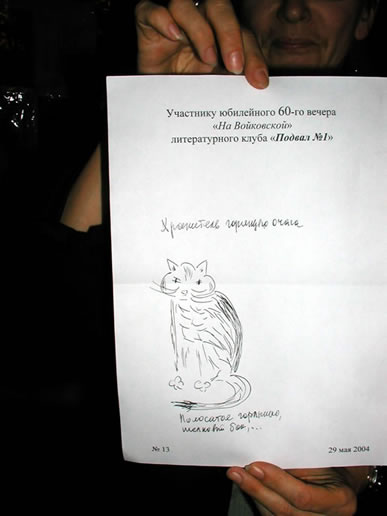 Участнику юбилейного 60-го вечера
«На Войковской»
литературного клуба «Подвал №1»
Хранитель очага
Полосатое
бок,...
№ 13
29 мая 2004